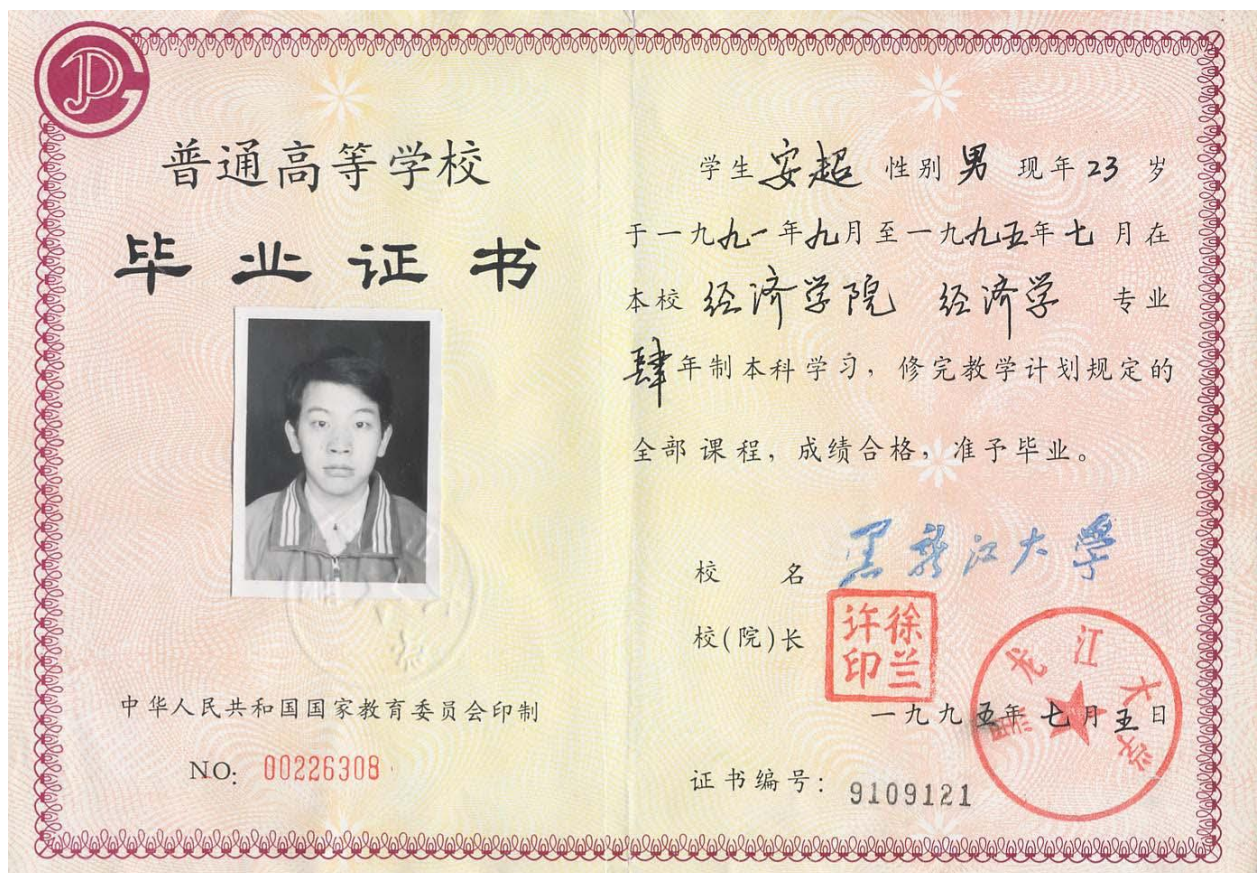 普通高等学校
毕业证书
中华人民共和国国家教育委员会印制
NO: 00226308
学生 安超 性别 男 现年 23 岁
于一九九一年九月至一九九五年七月在
本校 经济学院 经济学 专业
肆年制本科学习，修完教学计划规定的
全部课程，成绩合格，准予毕业。
校 名 黑龙江大學
校(院)长 徐兰许印
黑龙江大学
一九九五年七月五日
证书编号: 9109121